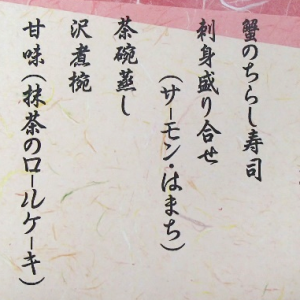 蟹のちらし寿司
刺身盛り合せ
(サーモン・はまち)
茶碗蒸し
沢煮椀
甘味(抹茶のロールケーキ)